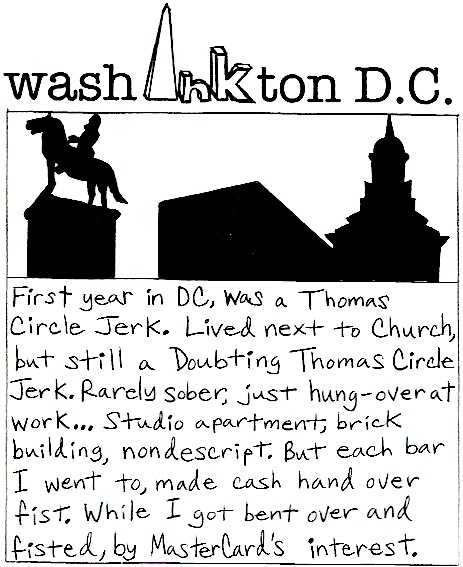 washInkton D.C.
First year in DC, was a Thomas
Circle Jerk. Lived next to Church,
but still a Doubting Thomas Circle
Jerk. Rarely sober, just hung-over at
work... Studio apartment, brick
building, nondescript. But each bar
I went to, made cash hand over
fist. While I got bent over and
fisted, by MasterCard's interest.